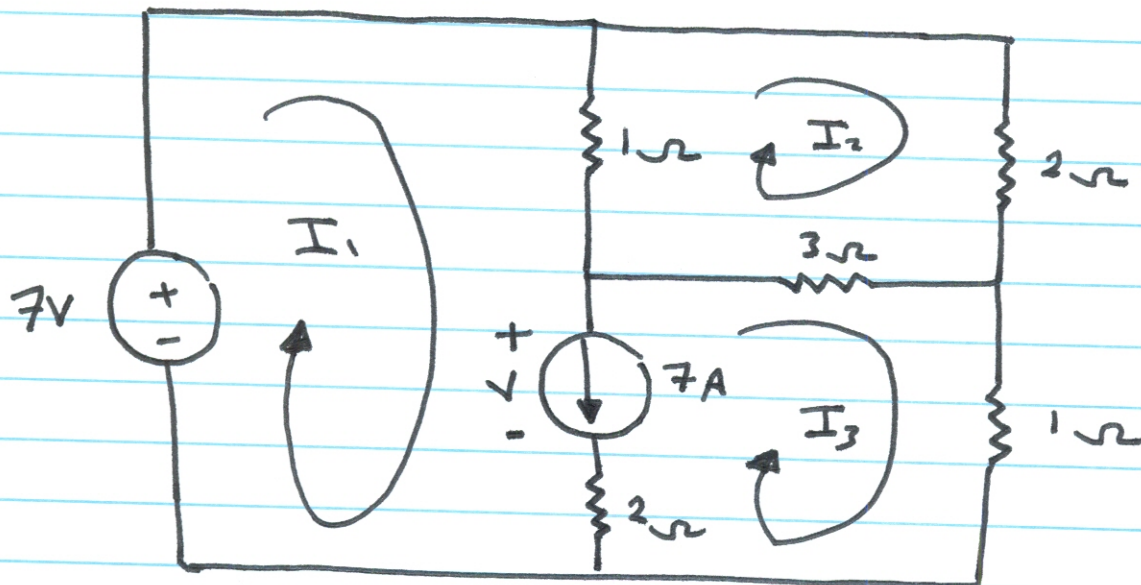 I₁
1Ω
I₂
2Ω
3Ω
7V
+
-
+
V
-
7A
I₃
1Ω
2Ω